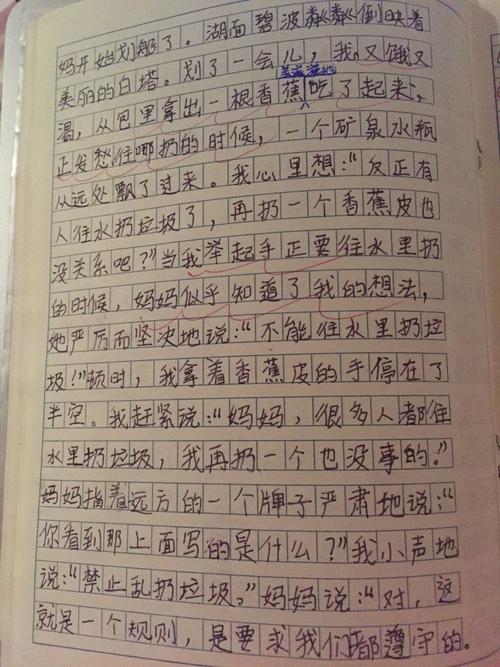 妈开始划船了。湖面碧波粼粼倒映着
美丽的白塔。划了一会儿，我又饿又
渴，从包里拿出一根香蕉吃了起来，
正发愁往哪扔的时候，一个矿泉水瓶
从远处飘了过来。我心里想：“反正有
人往水扔垃圾了，再扔一个香蕉皮也
没关系吧？”当我举起手正要往水里扔
的时候，妈妈似乎知道了我的想法，
她严厉而坚决地说：“不能往水里扔垃
圾！”顿时，我拿着香蕉皮的手停在了
半空。我赶紧说：“妈妈，很多人都往
水里扔垃圾，我再扔一个也没事的。”
妈妈指着远方的一个牌子严肃地说：“
你看到那上面写的是什么？”我小声地
说：“禁止乱扔垃圾。”妈妈说：“对，这
就是一个规则，是要求我们都遵守的。